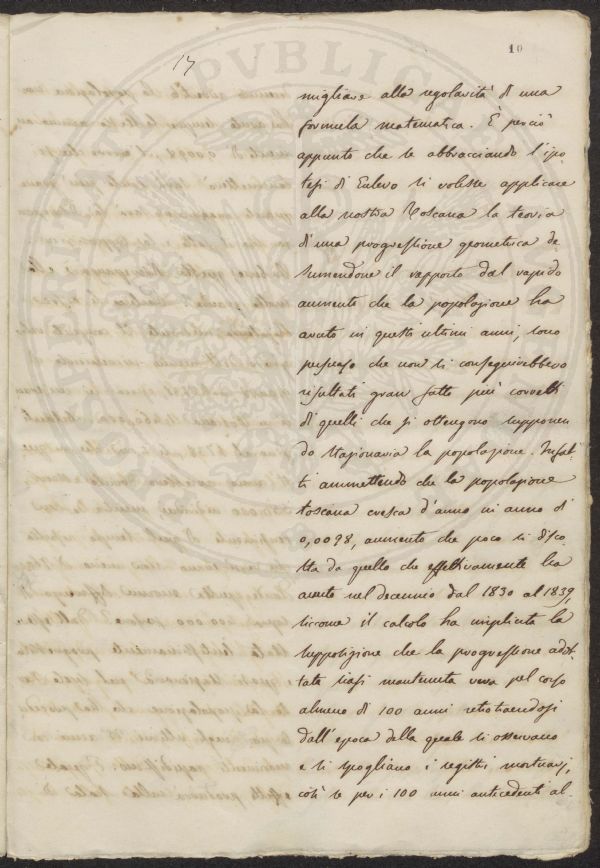 10
17
migliare alla regolarità di una
formula matematica. È perciò
appunto che se abbracciando l'ipo-
tesi di Eulero si volesse applicare
alla nostra Toscana la teoria
d'una progressione geometrica de
sumendone il rapporto dal rapido
aumento che la popolazione ha
avuto in questi ultimi anni, sono
persuaso che non si conseguirebbero
risultati gran fatto più corretti
di quelli che si ottengono supponen
do stazionaria la popolazione. Infat-
ti ammettendo che la popolazione
toscana cresca d'anno in anno di
0,0098, aumento che poco si disco-
sta da quello che effettivamente ha
avuto nel decennio dal 1830 al 1839,
siccome il calcolo ha implicita la
supposizione che la progressione adot-
tata siasi mantenuta vera pel corso
almeno di 100 anni retrotraendosi
dall'epoca della quale si osservano
e si spogliano i registri mortuarj,
così se per i 100 anni antecedenti al-